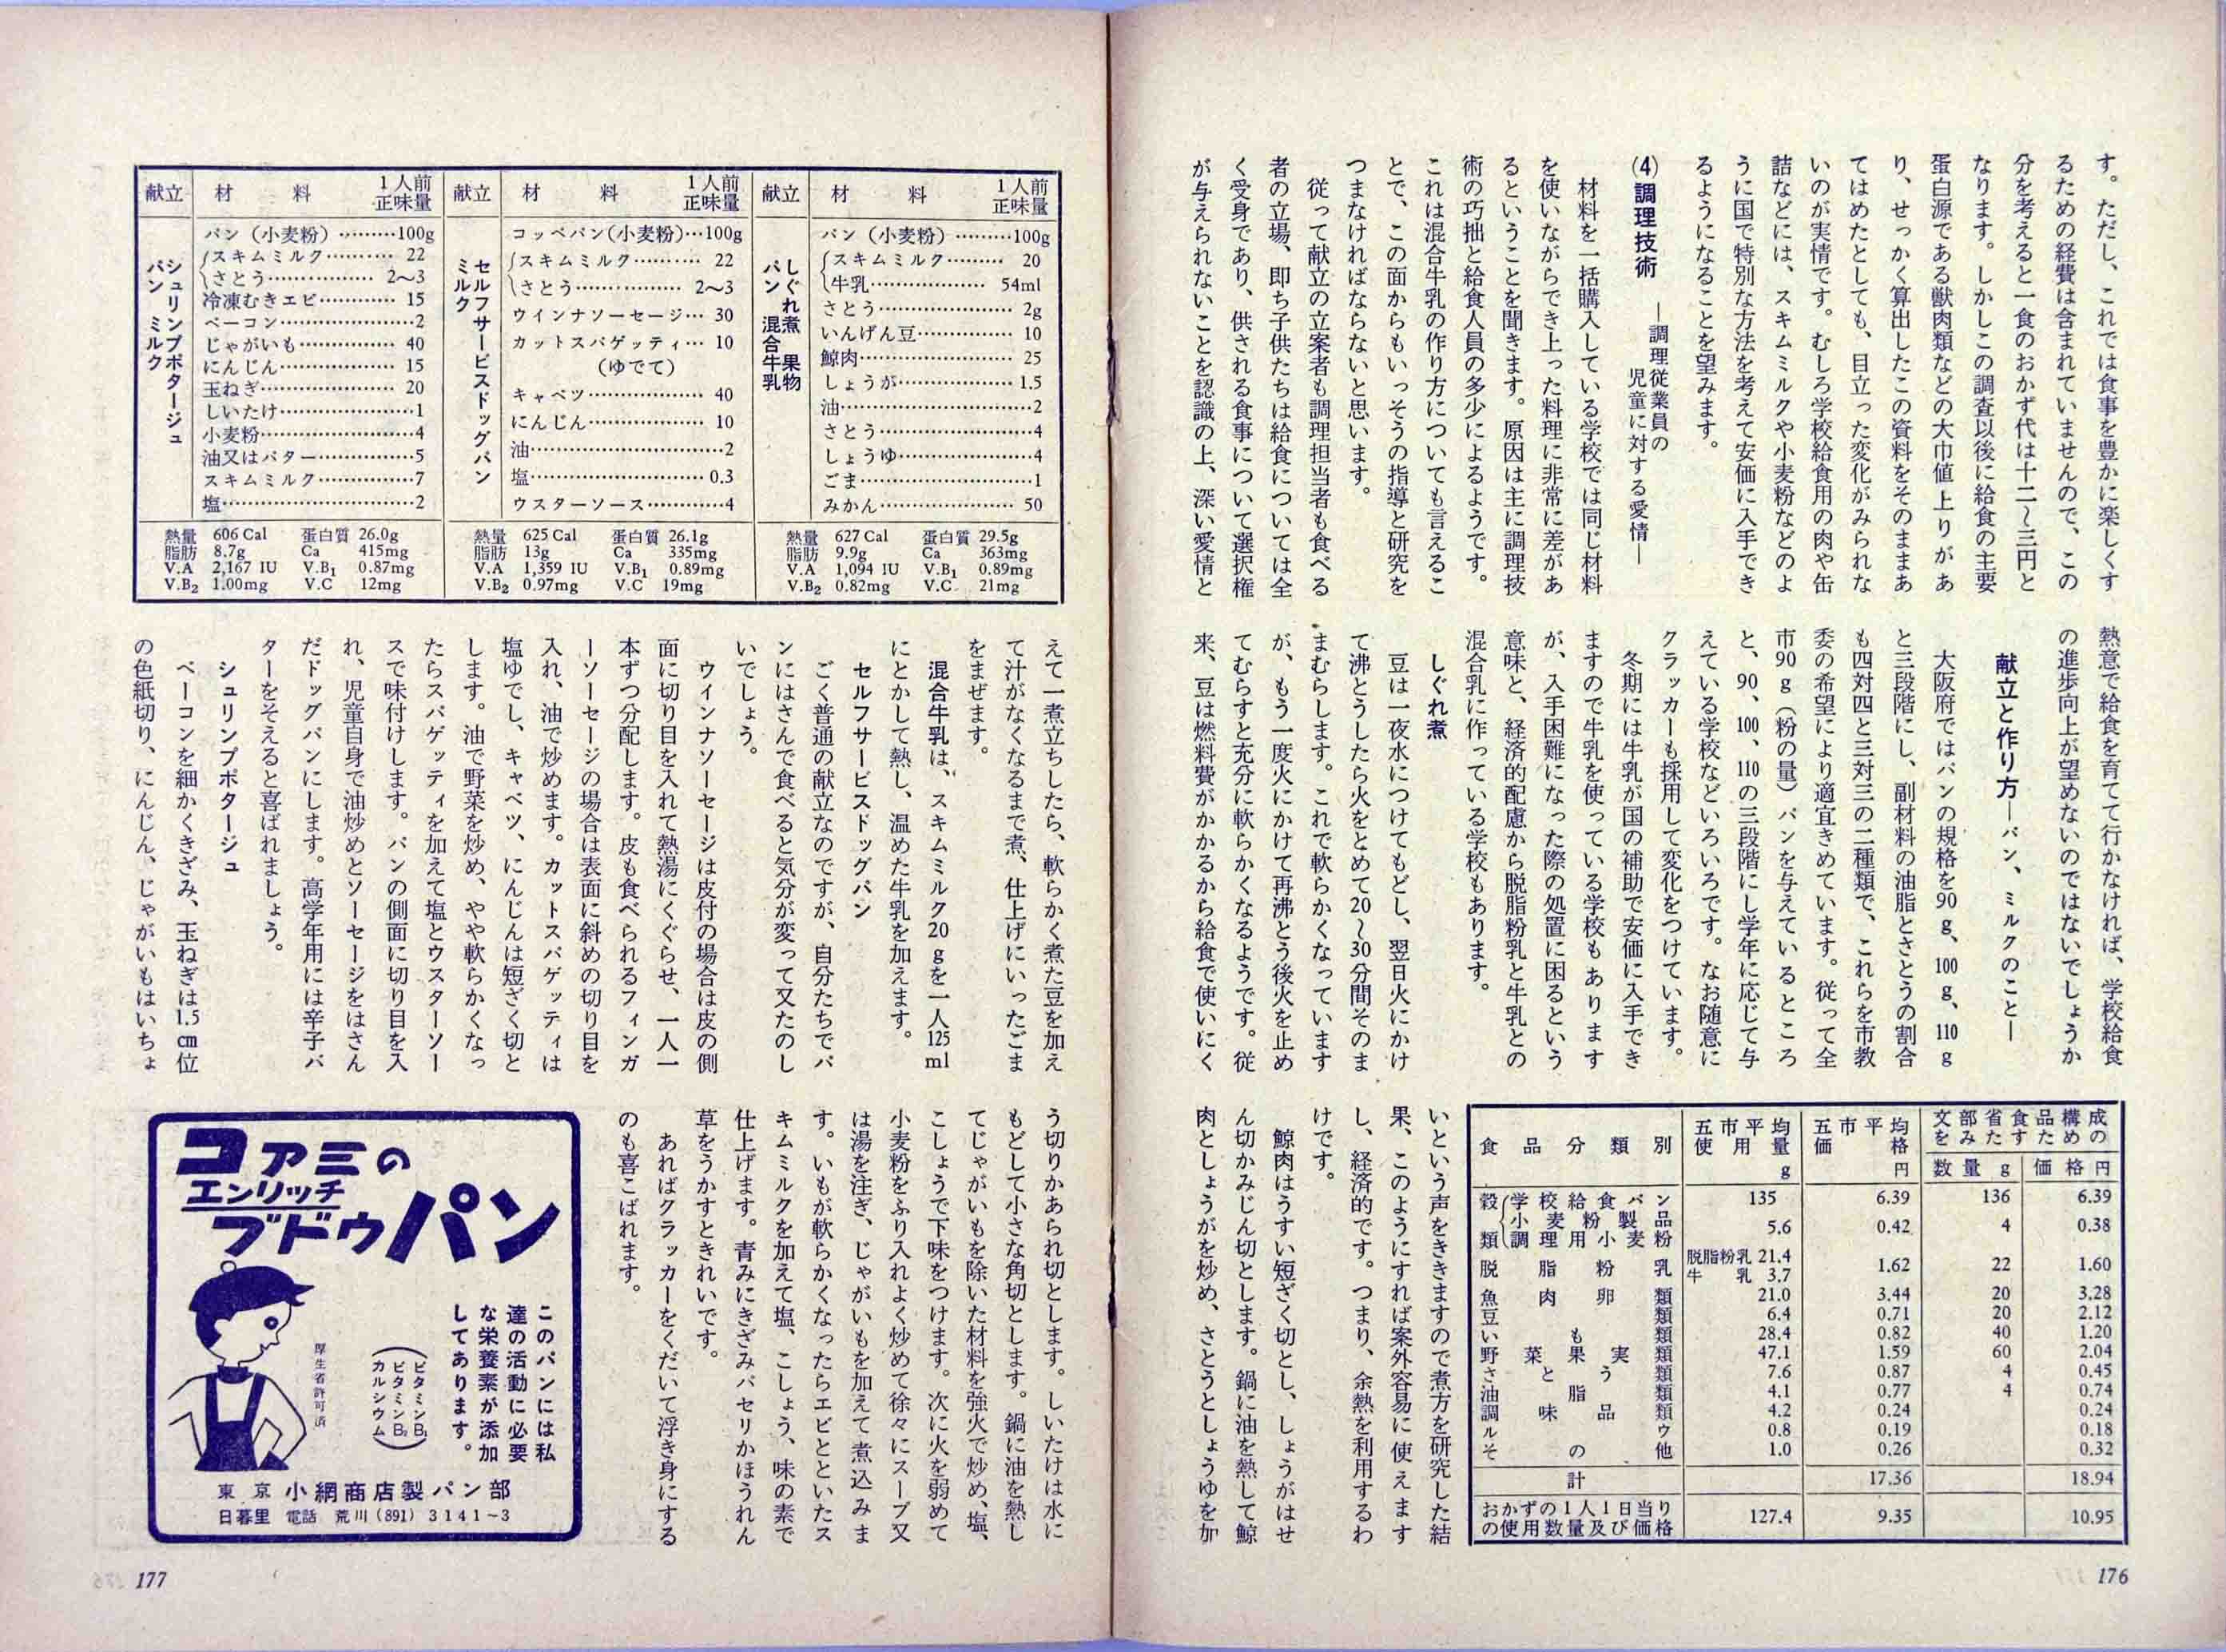 す。ただし、これでは食事を豊かに楽しくす
るための経費は含まれていませんので、この
分を考えると一食のおかず代は十二〜三円と
なります。しかしこの調査以後に給食の主要
蛋白源である獣肉類などの大巾値上りがあ
り、せっかく算出したこの資料をそのままあ
てはめたとしても、目立った変化がみられな
いのが実情です。むしろ学校給食用の肉や缶
詰などには、スキムミルクや小麦粉などのよ
うに国で特別な方法を考えて安価に入手でき
るようになることを望みます。
(4) 調理技術 ―調理従業員の
児童に対する愛情―
材料を一括購入している学校では同じ材料
を使いながらでき上った料理に非常に差があ
るということを聞きます。原因は主に調理技
術の巧拙と給食人員の多少によるようです。
これは混合牛乳の作り方についても言えるこ
とで、この面からもいっそうの指導と研究を
つまなければならないと思います。
従って献立の立案者も調理担当者も食べる
者の立場、即ち子供たちは給食については全
く受身であり、供される食事について選択権
が与えられないことを認識の上、深い愛情と
熱意で給食を育てて行かなければ、学校給食
の進歩向上が望めないのではないでしょうか
献立と作り方―パン、ミルクのこと―
大阪府ではパンの規格を90g、100g、110g
と三段階にし、副材料の油脂とさとうの割合
も四対四と三対三の二種類で、これらを市教
委の希望により適宜きめています。従って全
市90g（粉の量）パンを与えているところ
と、90、100、110の三段階にし学年に応じて与
えている学校などいろいろです。なお随意に
クラッカーも採用して変化をつけています。
冬期には牛乳が国の補助で安価に入手でき
ますので牛乳を使っている学校もあります
が、入手困難になった際の処置に困るという
意味と、経済的配慮から脱脂粉乳と牛乳との
混合乳に作っている学校もあります。
しぐれ煮
豆は一夜水につけてもどし、翌日火にかけ
て沸とうしたら火をとめて20〜30分間そのま
まむらします。これで軟らかくなっています
が、もう一度火にかけて再沸とう後火を止め
てむらすと充分に軟らかくなるようです。従
来、豆は燃料費がかかるから給食で使いにく
食品分類別 五市平均使用量 g 五市平均価格 円 文部省食品構成をみたすための
数量 g 価格 円
穀類 学校給食パン 135 6.39 136 6.39
小麦粉製品
調理用小麦粉 5.6 0.42 4 0.38
脱脂粉乳 脱脂粉乳 21.4 牛乳 3.7 1.62 22 1.60
魚肉卵類 21.0 3.44 20 3.28
豆類 6.4 0.71 20 2.12
いも類 28.4 0.82 40 1.20
野菜果実類 47.1 1.59 60 2.04
さとう類 7.6 0.87 4 0.45
油脂類 4.1 0.77 4 0.74
調味品類 4.2 0.24 0.24
ルウ 0.8 0.19 0.18
その他 1.0 0.26 0.32
計 17.36 18.94
おかずの1人1日当りの使用数量及び価格 127.4 9.35 10.95
いという声をききますので煮方を研究した結
果、このようにすれば案外容易に使えます
し、経済的です。つまり、余熱を利用するわ
けです。
鯨肉はうすい短ざく切とし、しょうがはせ
ん切かみじん切とします。鍋に油を熱して鯨
肉としょうがを炒め、さとうとしょうゆを加
176
献立 材料 1人前正味量
しぐれ煮 果物
パン 混合牛乳
パン（小麦粉）………100g
スキムミルク……… 20
牛乳……………… 54ml
さとう…………………2g
いんげん豆…………… 10
鯨肉…………………… 25
しょうが………………1.5
油………………………2
さとう…………………4
しょうゆ………………4
ごま……………………1
みかん………………… 50
熱量 627 Cal 蛋白質 29.5g
脂肪 9.9g Ca 363mg
V.A 1,094 IU V.B₁ 0.89mg
V.B₂ 0.82mg V.C 21mg
献立 材料 1人前正味量
セルフサービスドッグパン
ミルク
コッペパン(小麦粉)…100g
スキムミルク……… 22
さとう…………… 2〜3
ウインナソーセージ… 30
カットスパゲッティ… 10
（ゆでて）
キャベツ……………… 40
にんじん……………… 10
油………………………2
塩……………………… 0.3
ウスターソース…………4
熱量 625 Cal 蛋白質 26.1g
脂肪 13g Ca 335mg
V.A 1,359 IU V.B₁ 0.89mg
V.B₂ 0.97mg V.C 19mg
献立 材料 1人前正味量
シュリンプポタージュ
パン ミルク
パン（小麦粉）………100g
スキムミルク……… 22
さとう…………… 2〜3
冷凍むきエビ………… 15
ベーコン………………2
じゃがいも…………… 40
にんじん……………… 15
玉ねぎ………………… 20
しいたけ………………1
小麦粉…………………4
油又はバター…………5
スキムミルク…………7
塩………………………2
熱量 606 Cal 蛋白質 26.0g
脂肪 8.7g Ca 415mg
V.A 2,167 IU V.B₁ 0.87mg
V.B₂ 1.00mg V.C 12mg
えて一煮立ちしたら、軟らかく煮た豆を加え
て汁がなくなるまで煮、仕上げにいったごま
をまぜます。
混合牛乳は、スキムミルク20gを一人125ml
にとかして熱し、温めた牛乳を加えます。
セルフサービスドッグパン
ごく普通の献立なのですが、自分たちでパ
ンにはさんで食べると気分が変って又たのし
いでしょう。
ウインナソーセージは皮付の場合は皮の側
面に切り目を入れて熱湯にくぐらせ、一人一
本ずつ分配します。皮も食べられるフィンガ
ーソーセージの場合は表面に斜めの切り目を
入れ、油で炒めます。カットスパゲッティは
塩ゆでし、キャベツ、にんじんは短ざく切と
します。油で野菜を炒め、やや軟らかくなっ
たらスパゲッティを加えて塩とウスターソー
スで味付けします。パンの側面に切り目を入
れ、児童自身で油炒めとソーセージをはさん
だドッグパンにします。高学年用には辛子バ
ターをそえると喜ばれましょう。
シュリンプポタージュ
ベーコンを細かくきざみ、玉ねぎは1.5cm位
の色紙切り、にんじん、じゃがいもはいちょ
う切りかあられ切とします。しいたけは水に
もどして小さな角切とします。鍋に油を熱し
てじゃがいもを除いた材料を強火で炒め、塩、
こしょうで下味をつけます。次に火を弱めて
小麦粉をふり入れよく炒めて徐々にスープ又
は湯を注ぎ、じゃがいもを加えて煮込みま
す。いもが軟らかくなったらエビとといたス
キムミルクを加えて塩、こしょう、味の素で
仕上げます。青みにきざみパセリかほうれん
草をうかすときれいです。
あればクラッカーをくだいて浮き身にする
のも喜こばれます。
コアミの
エンリッチ
ブドウパン
このパンには私
達の活動に必要
な栄養素が添加
してあります。
（ビタミンB₁
ビタミンB₂
カルシウム）
厚生省許可済
東京 小網商店製パン部
日暮里 電話 荒川(891) 3141〜3
177